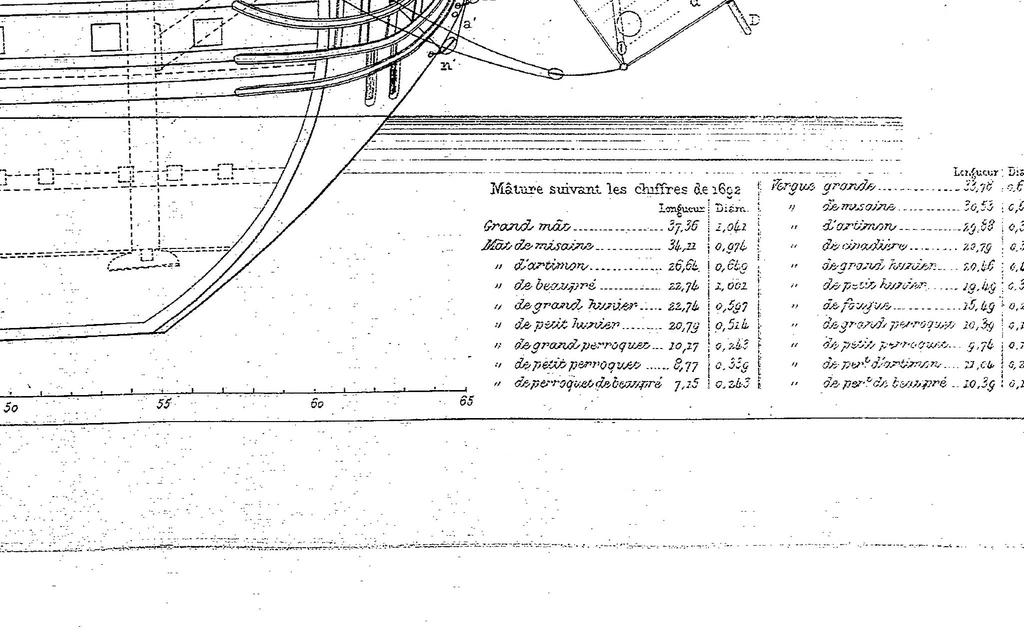 a'
d
D
n'
Mâture suivant les chiffres de 1692
Longueur Diam.
Grand mât 37,36 1,041
Mât de misaine 34,11 0,974
" d'artimon 26,64 0,649
" de beaupré 22,74 1,001
" de grand hunier 22,74 0,597
" de petit hunier 20,79 0,514
" de grand perroquet 10,17 0,243
" de petit perroquet 8,77
" de perroquet de beaupré 7,15 0,243
Longueur
Vergue grande 33,78
" de misaine 30,53
" d'artimon 29,88
" de civadière 20,79
" de grand hunier
" de petit hunier 19,49
" de fougue 15,49
" de grand perroquet 10,39
" de petit perroquet 9,74
" de per.t d'artimon
" de per.t de beaupré 10,39
50 55 60 65